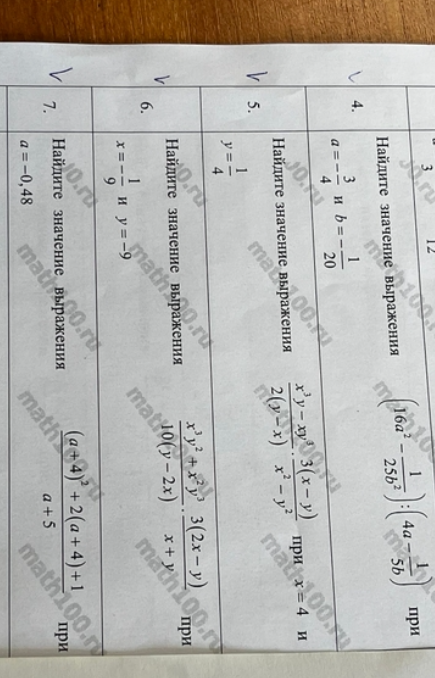 3
12
4. Найдите значение выражения (16a² − 1/(25b²)) : (4a − 1/(5b)) при
a = −3/4 и b = −1/20
5. Найдите значение выражения (x³y − xy³)/(2(y − x)) · (3(x − y))/(x² − y²) при x = 4 и
y = 1/4
6. Найдите значение выражения (x³y² + x²y³)/(10(y − 2x)) · (3(2x − y))/(x + y) при
x = −1/9 и y = −9
7. Найдите значение выражения ((a + 4)² + 2(a + 4) + 1)/(a + 5) при
a = −0,48
math100.ru